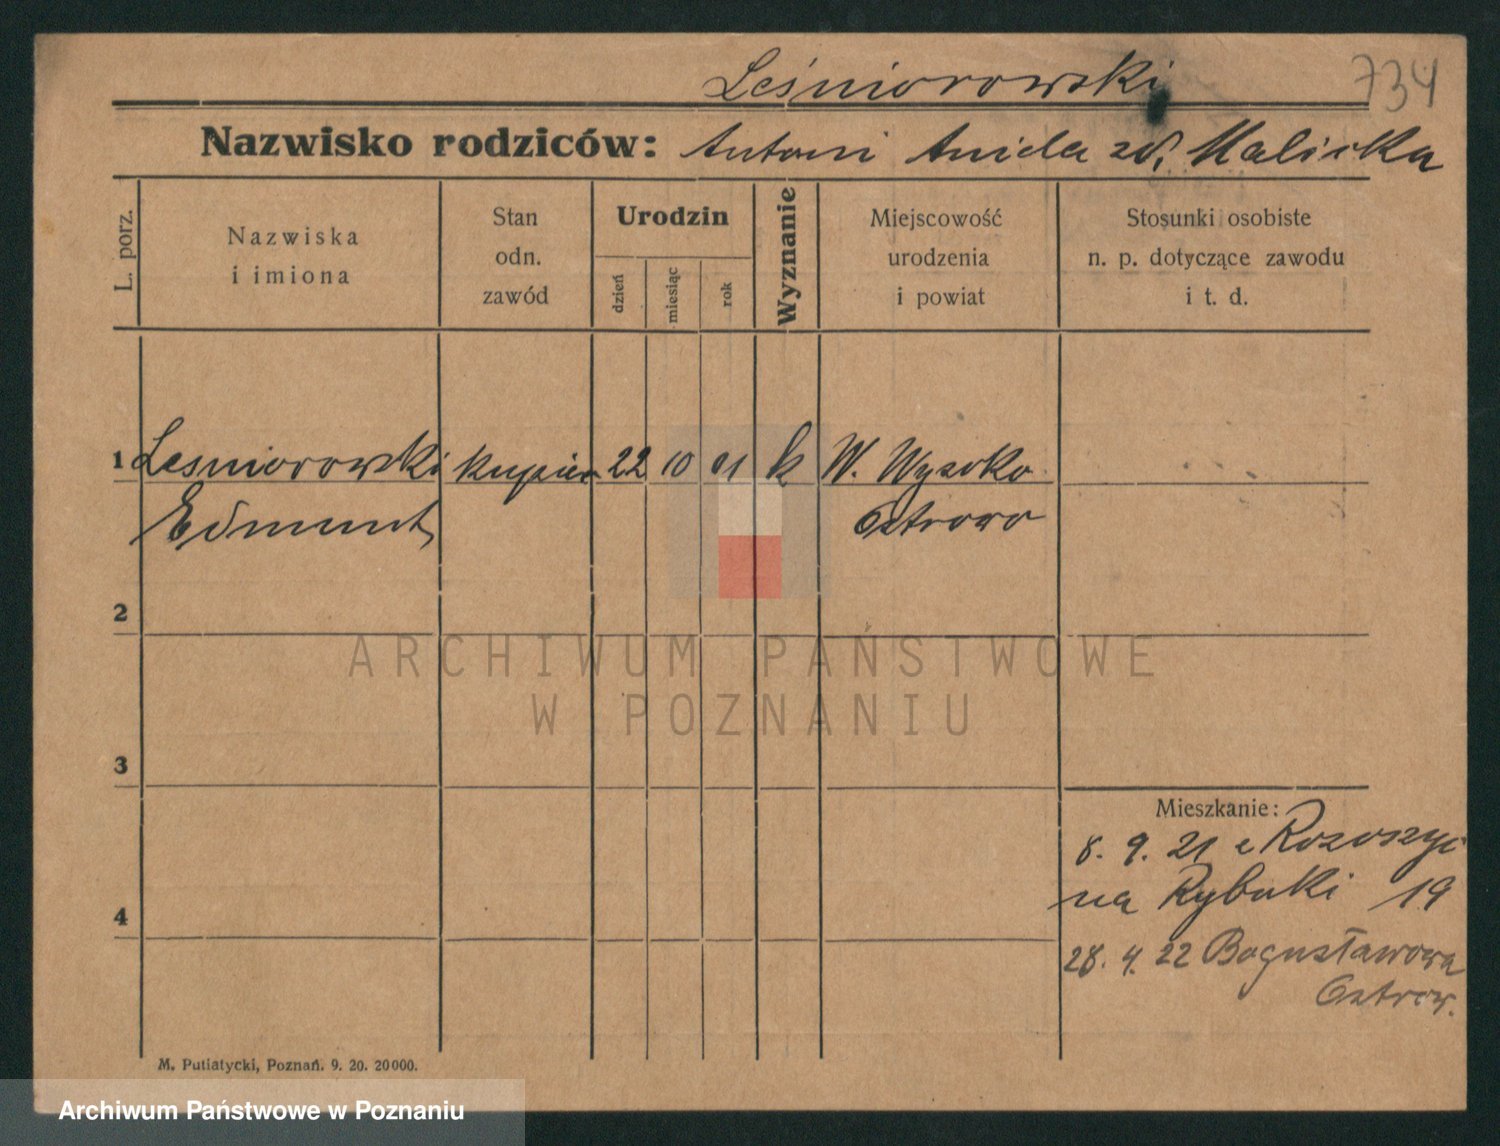 Leśniorowski
734
Nazwisko rodziców: Antoni Anida zd. Malicka
L. porz.
Nazwiska
i imiona
Stan
odn.
zawód
Urodzin
dzień
miesiąc
rok
Wyznanie
Miejscowość
urodzenia
i powiat
Stosunki osobiste
n. p. dotyczące zawodu
i t. d.
1 Lesniorowski kupiec 22 10 01 k W. Wysoko
Edmunt Ostrowo
2
ARCHIWUM PAŃSTWOWE
W POZNANIU
3
Mieszkanie:
8. 9. 21 z
na Rybaki 19
4
28. 4. 22 Bogusławowa
Ostrow.
M. Putiatycki, Poznań. 9. 20. 20000.
Archiwum Państwowe w Poznaniu